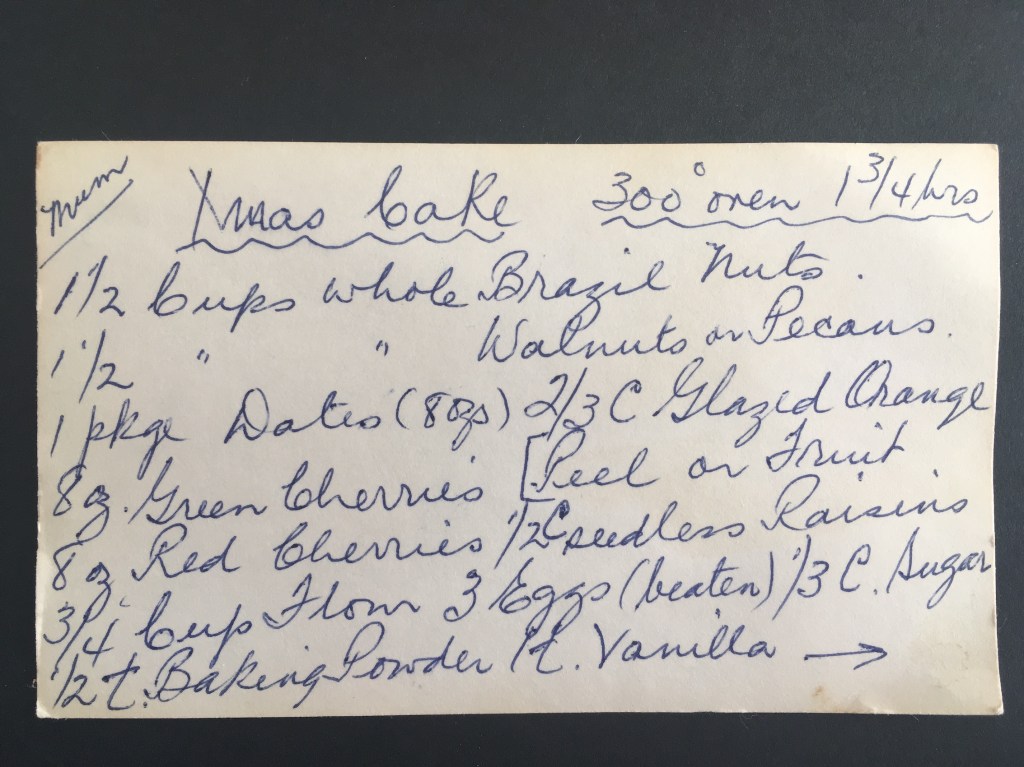 Mum
Xmas Cake 300° oven 1 3/4 hrs
1 1/2 Cups whole Brazil Nuts.
1 1/2 " " Walnuts or Pecans.
1 pkge Dates (8 ozs) 2/3 C Glazed Orange
8 oz. Green Cherries [Peel or Fruit
8 oz. Red Cherries 1/2 C seedless Raisins
3/4 Cup Flour 3 Eggs (beaten) 1/3 C. Sugar
1/2 t. Baking Powder 1 t. Vanilla →